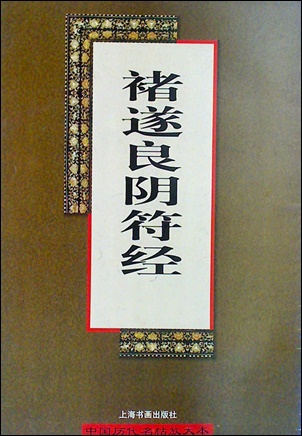 褚遂良阴符经
上海书画出版社
中国历代名帖放大本